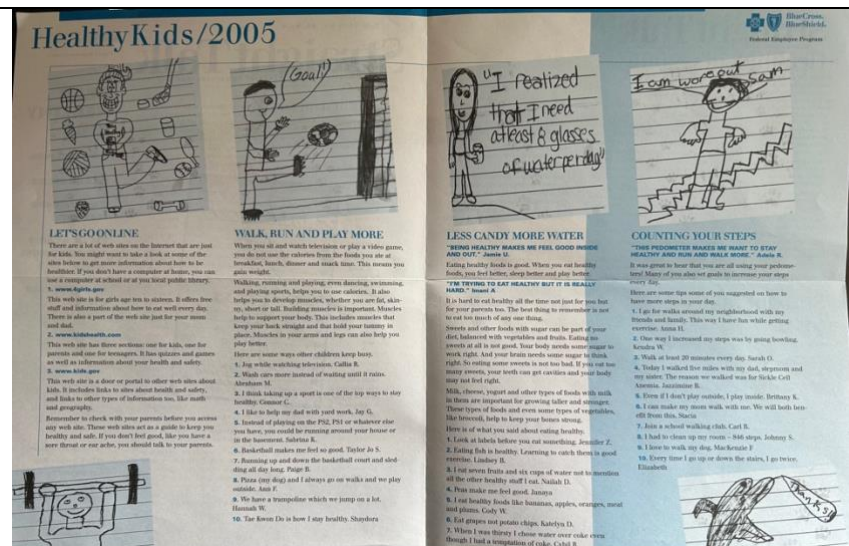 HealthyKids/2005
BlueCross.
BlueShield.
Federal Employee Program
LET'S GO ONLINE
There are a lot of web sites on the Internet that are just
for kids. You might want to take a look at some of the
sites below to get more information about how to be
healthier. If you don't have a computer at home, you can
use a computer at school or at you local public library.
1. www.4girls.gov
This web site is for girls age ten to sixteen. It offers free
stuff and information about how to eat well every day.
There is also a part of the web site just for your mom
and dad.
2. www.kidshealth.com
This web site has three sections: one for kids, one for
parents and one for teenagers. It has quizzes and games
as well as information about your health and safety.
3. www.kids.gov
This web site is a door or portal to other web sites about
kids. It includes links to sites about health and safety,
and links to other types of information too, like math
and geography.
Remember to check with your parents before you access
any web site. These web sites act as a guide to keep you
healthy and safe. If you don't feel good, like you have a
sore throat or ear ache, you should talk to your parents.
(Goal!)
WALK, RUN AND PLAY MORE
When you sit and watch television or play a video game,
you do not use the calories from the foods you ate at
breakfast, lunch, dinner and snack time. This means you
gain weight.
Walking, running and playing, even dancing, swimming,
and playing sports, helps you to use calories. It also
helps you to develop muscles, whether you are fat, skin-
ny, short or tall. Building muscles is important. Muscles
help to support your body. This includes muscles that
keep your back straight and that hold your tummy in
place. Muscles in your arms and legs can also help you
play better.
Here are some ways other children keep busy.
1. Jog while watching television. Callie B.
2. Wash cars more instead of waiting until it rains.
Abraham M.
3. I think taking up a sport is one of the top ways to stay
healthy. Connor G.
4. I like to help my dad with yard work. Jay G.
5. Instead of playing on the PS2, PS1 or whatever else
you have, you could be running around your house or
in the basement. Sabrina R.
6. Basketball makes me feel so good. Taylor Jo S.
7. Running up and down the basketball court and sled-
ding all day long. Paige B.
8. Pizza (my dog) and I always go on walks and we play
outside. Ann F.
9. We have a trampoline which we jump on a lot.
Hannah W.
10. Tae Kwon Do is how I stay healthy. Shaydora
"I realized
that I need
atleast 8 glasses
of water per day"
LESS CANDY MORE WATER
"BEING HEALTHY MAKES ME FEEL GOOD INSIDE
AND OUT." Jamie U.
Eating healthy foods is good. When you eat healthy
foods, you feel better, sleep better and play better.
"I'M TRYING TO EAT HEALTHY BUT IT IS REALLY
HARD." Imani A
It is hard to eat healthy all the time not just for you but
for your parents too. The best thing to remember is not
to eat too much of any one thing.
Sweets and other foods with sugar can be part of your
diet, balanced with vegetables and fruits. Eating no
sweets at all is not good. Your body needs some sugar to
work right. And your brain needs some sugar to think
right. So eating some sweets is not too bad. If you eat too
many sweets, your teeth can get cavities and your body
may not feel right.
Milk, cheese, yogurt and other types of foods with milk
in them are important for growing taller and stronger.
These types of foods and even some types of vegetables,
like broccoli, help to keep your bones strong.
Here is of what you said about eating healthy.
1. Look at labels before you eat something. Jennifer Z.
2. Eating fish is healthy. Learning to catch them is good
exercise. Lindsey B.
3. I eat seven fruits and six cups of water not to mention
all the other healthy stuff I eat. Nailah D.
4. Peas make me feel good. Janaya
5. I eat healthy foods like bananas, apples, oranges, meat
and plums. Cody W.
6. Eat grapes not potato chips. Katelyn D.
7. When I was thirsty I chose water over coke even
though I had a temptation of coke.
I am wore out
Sam
COUNTING YOUR STEPS
"THIS PEDOMETER MAKES ME WANT TO STAY
HEALTHY AND RUN AND WALK MORE." Adele R.
It was great to hear that you are all using your pedome-
ters! Many of you also set goals to increase your steps
every day.
Here are some tips some of you suggested on how to
have more steps in your day.
1. I go for walks around my neighborhood with my
friends and family. This way I have fun while getting
exercise. Anna H.
2. One way I increased my steps was by going bowling.
Kendra W.
3. Walk at least 20 minutes every day. Sarah O.
4. Today I walked five miles with my dad, stepmom and
my sister. The reason we walked was for Sickle Cell
Anemia. Jazzimine B.
5. Even if I don't play outside, I play inside. Brittany K.
6. I can make my mom walk with me. We will both ben-
efit from this. Nacia
7. Join a school walking club. Carl B.
8. I had to clean up my room – 846 steps. Johnny S.
9. I love to walk my dog. MacKenzie F
10. Every time I go up or down the stairs, I go twice.
Elizabeth
Thanks!